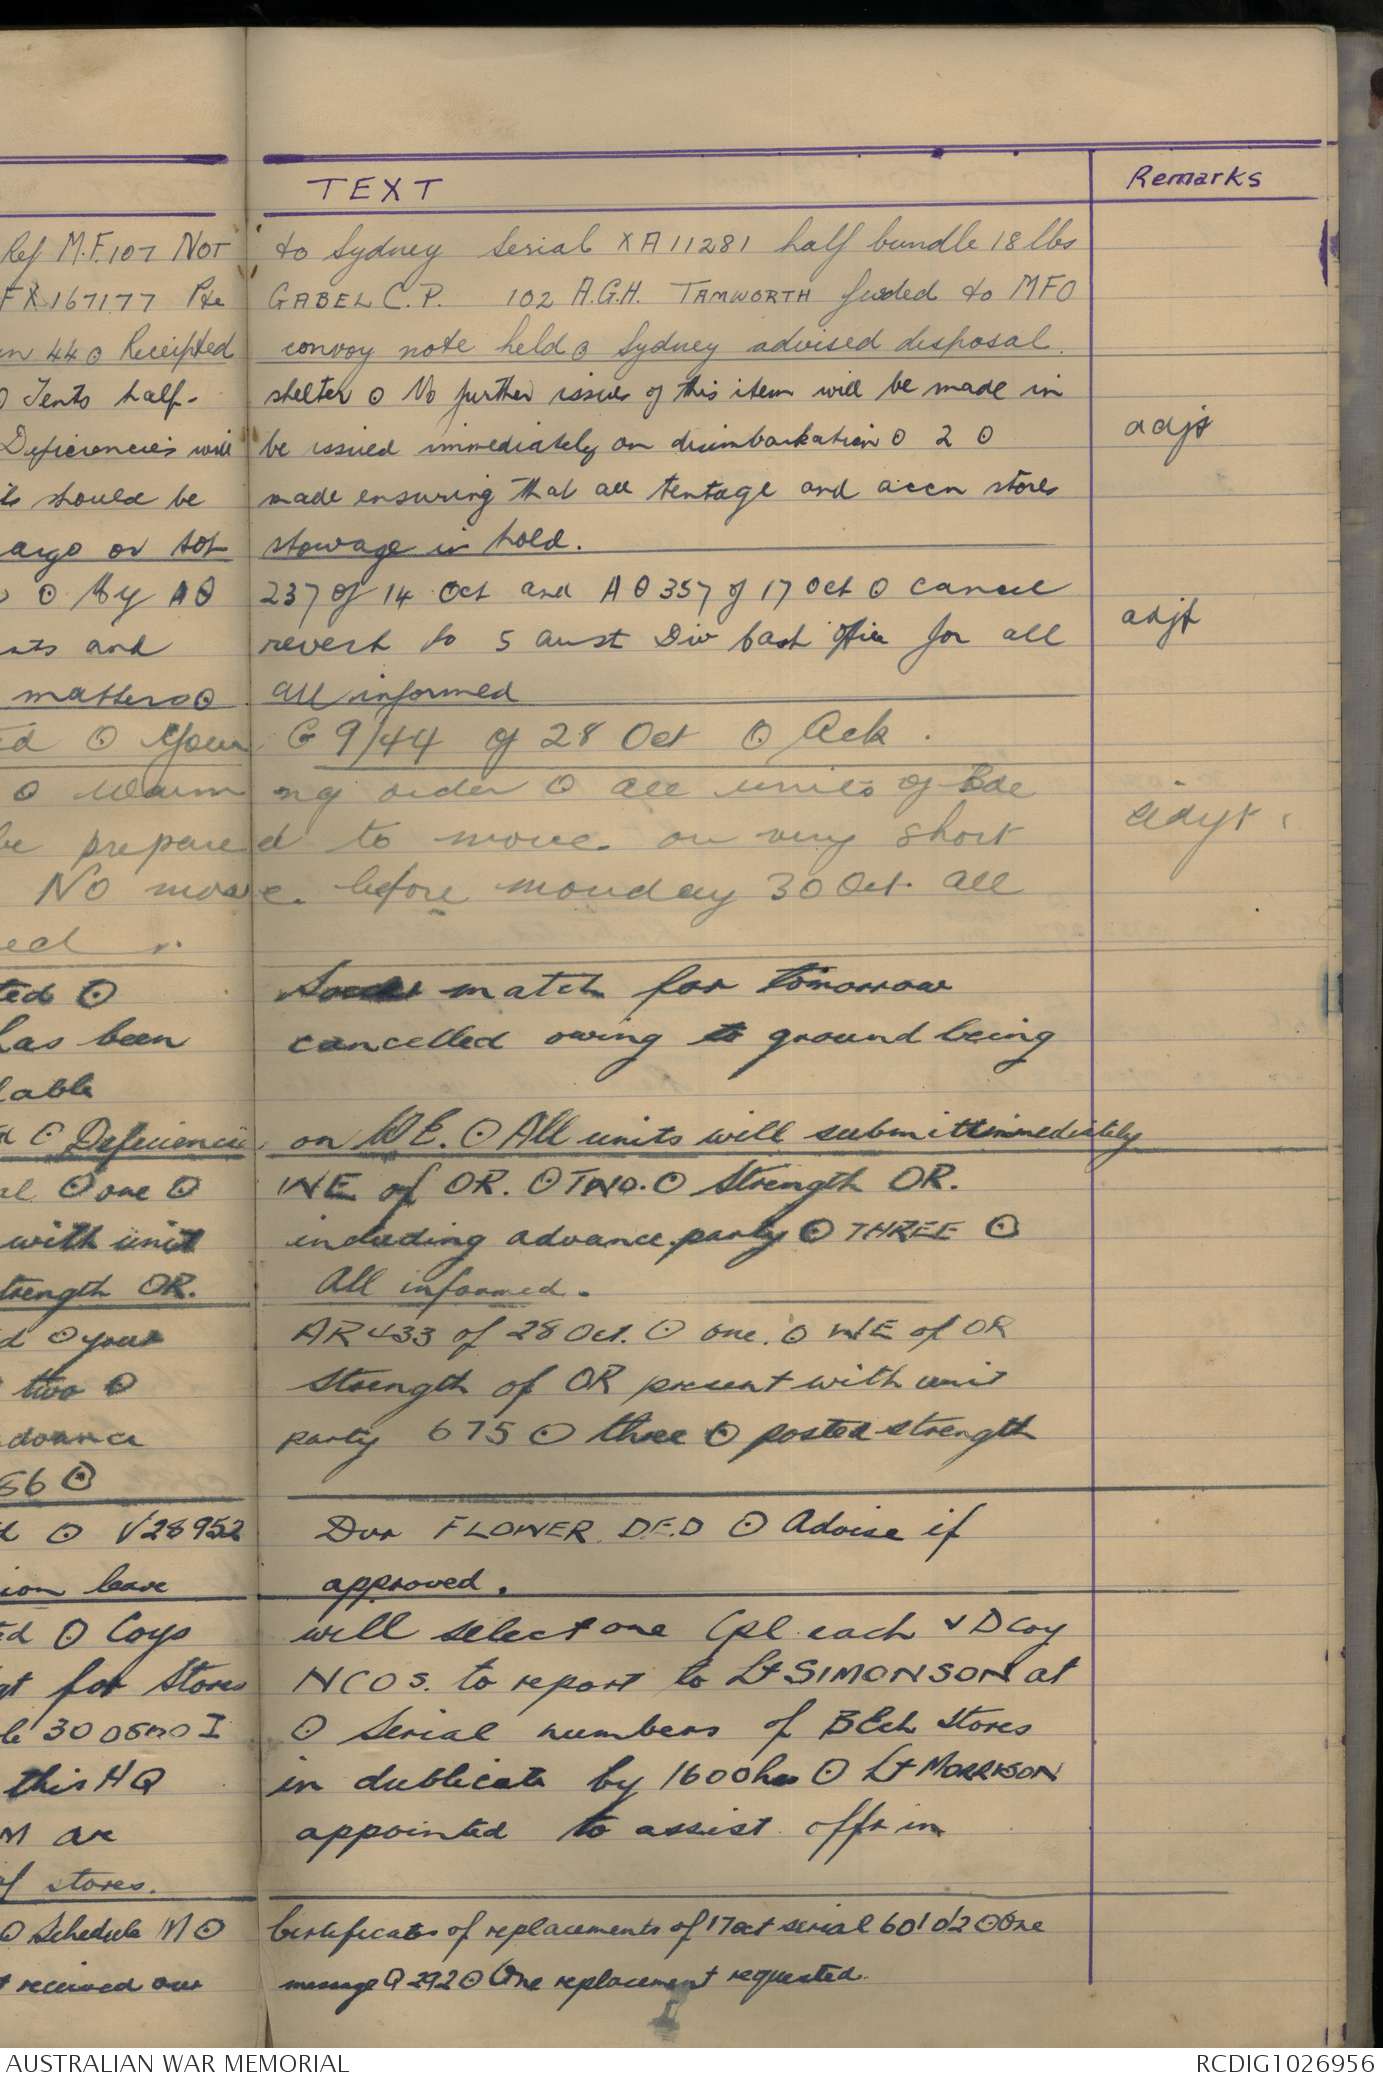 TEXT Remarks
Ref M.F.107 NOT to Sydney Serial XA11281 half bundle 18 lbs
FX167177 Pte GABEL C.P. 102 A.G.H. TAMWORTH fwded to MFO
44 ⊙ Receipted convoy note held ⊙ Sydney advised disposal.
⊙ Tents half- shelter ⊙ No further issues of this item will be made in
Deficiencies will be issued immediately on disembarkation ⊙ 2 ⊙ adjt
should be made ensuring that all tentage and accn stores
argo or hot stowage in hold.
⊙ My AQ 237 of 14 Oct and AQ 357 of 17 Oct ⊙ cancel
nts and revert to 5 Aust Div Cash Office for all adjt
matters ⊙ All informed
ed ⊙ Your G 9/44 of 28 Oct ⊙ Ack.
⊙ Warm ng order ⊙ all units of Bde
be prepare d to move on very short adjt
No mov e. before monday 30 Oct. all
ed.
ted ⊙ Soccer match for tomorrow
has been cancelled owing to ground being
lable
⊙ Deficiencies on WE. ⊙ All units will submit immediately
al ⊙ one ⊙ WE of OR. ⊙ TWO. ⊙ Strength OR.
with unit including advance party ⊙ THREE ⊙
trength OR. All informed.
d ⊙ your AR 433 of 28 Oct. ⊙ one. ⊙ WE of OR
two ⊙ Strength of OR present with unit
dvance party 675 ⊙ three ⊙ posted strength
56 ⊙
d ⊙ V28952 Dvr FLOWER D.E.D ⊙ Advise if
ion leave approved.
ed ⊙ Coys will select one Cpl each & D Coy
gt for Stores NCOS. to report to Lt SIMONSON at
le 300800 I ⊙ Serial numbers of B Ech stores
this HQ in dublicate by 1600 hrs ⊙ Lt MORRISON
M are appointed to assist offr in
of stores.
⊙ Schedule M ⊙ Certificates of replacements of 17 Oct serial 601 d/2 ⊙ One
t received our message Q 292 ⊙ One replacement requested.
AUSTRALIAN WAR MEMORIAL RCDIG1026956